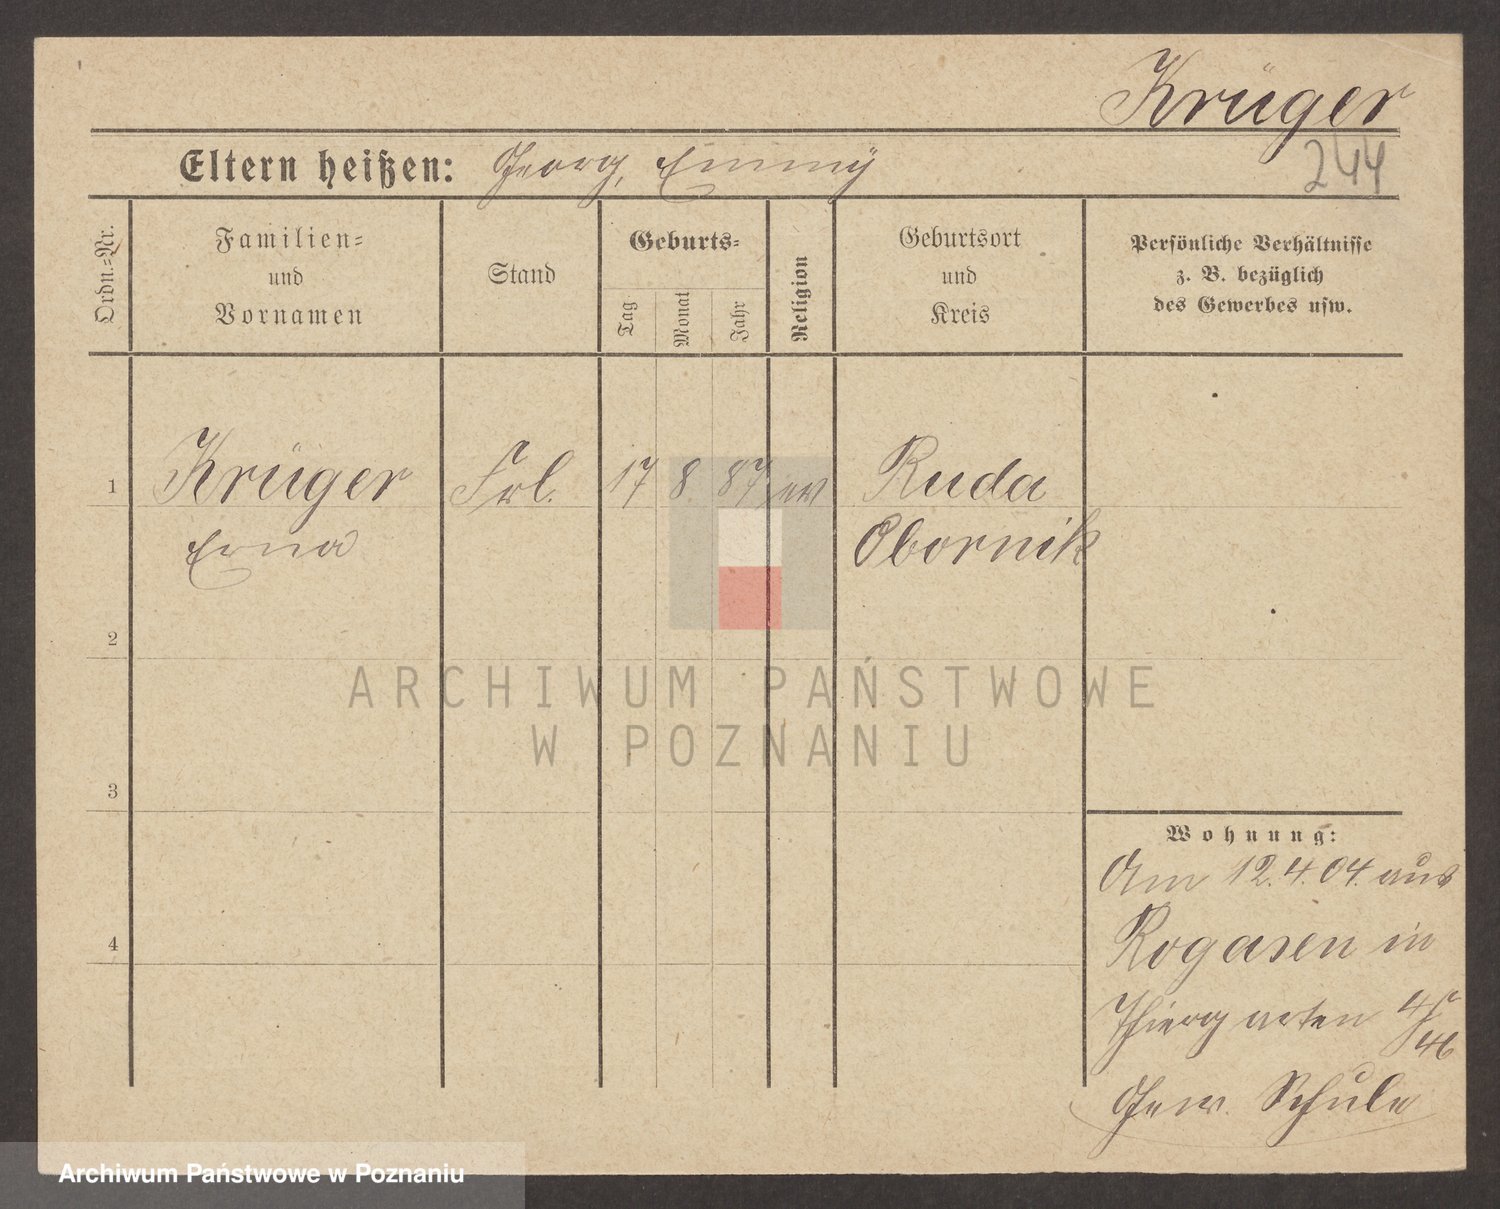 Krüger
244
Eltern heißen: Georg, Emmy
Ordn.-Nr.
Familien-
und
Vornamen
Stand
Geburts-
Tag
Monat
Jahr
Religion
Geburtsort
und
Kreis
Persönliche Verhältnisse
z. B. bezüglich
des Gewerbes usw.
1 Krüger Frl. 17 8 87 ev Ruda
Erna Obornik
2
3
4
ARCHIWUM PAŃSTWOWE
W POZNANIU
Wohnung:
Am 12.4.04. aus
Rogasen in
Thiergarten
46
Gew. Schule
Archiwum Państwowe w Poznaniu